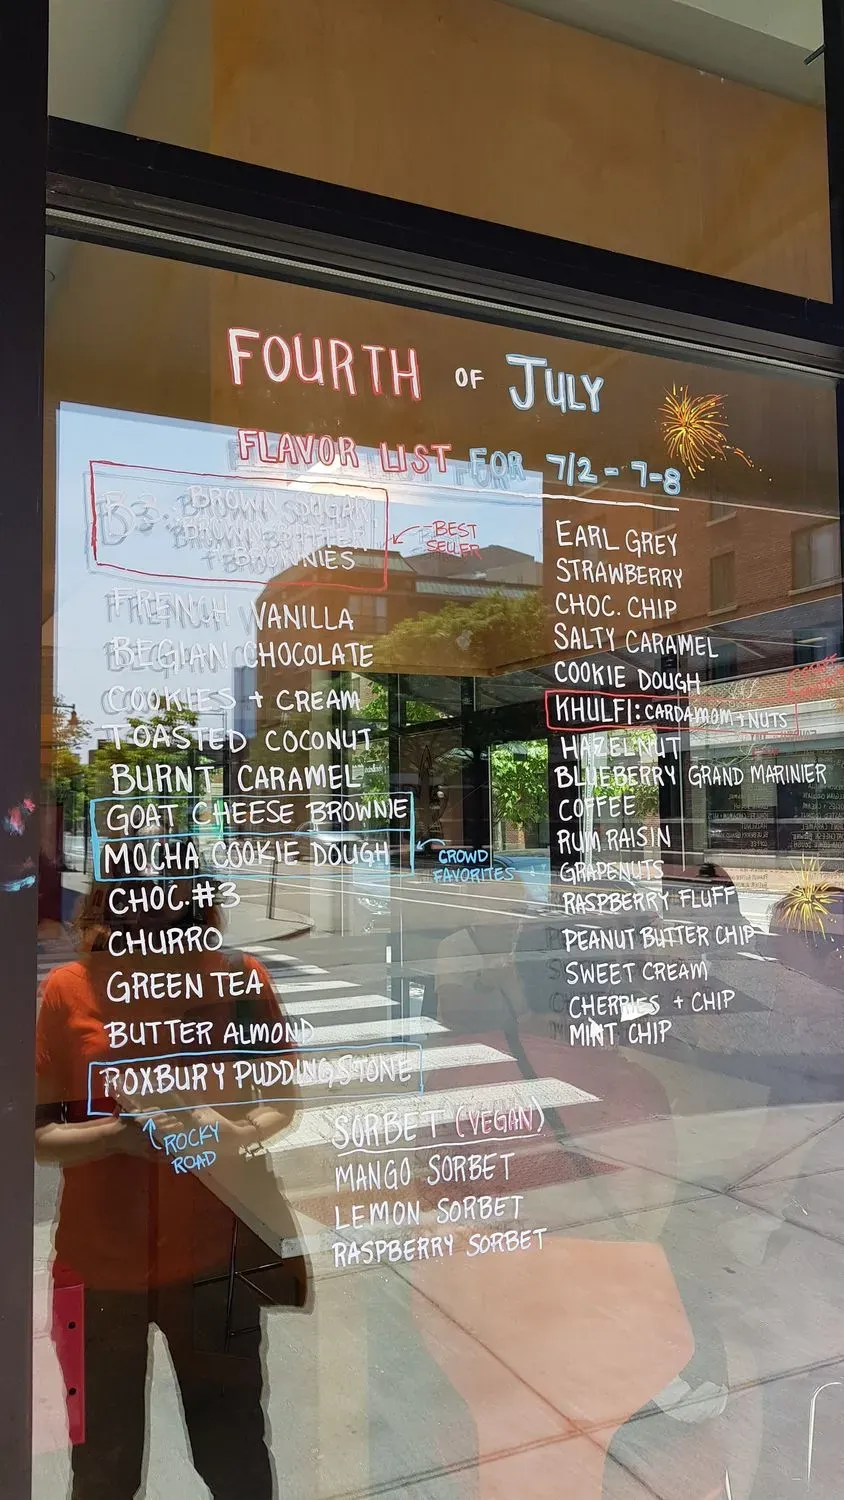 FOURTH OF JULY
FLAVOR LIST FOR 7/2 - 7-8
B3: BROWN SUGAR
BROWN BUTTER
+ BROWNIES
BEST
SELLER
FRENCH VANILLA
BEGIAN CHOCOLATE
COOKIES + CREAM
TOASTED COCONUT
BURNT CARAMEL
GOAT CHEESE BROWNIE
MOCHA COOKIE DOUGH
CROWD
FAVORITES
CHOC.#3
CHURRO
GREEN TEA
BUTTER ALMOND
ROXBURY PUDDINGSTONE
ROCKY
ROAD
EARL GREY
STRAWBERRY
CHOC. CHIP
SALTY CARAMEL
COOKIE DOUGH
KHULFI: CARDAMOM + NUTS
HAZELNUT
BLUEBERRY GRAND MARINIER
COFFEE
RUM RAISIN
GRAPENUTS
RASPBERRY FLUFF
PEANUT BUTTER CHIP
SWEET CREAM
CHERRIES + CHIP
MINT CHIP
SORBET (VEGAN)
MANGO SORBET
LEMON SORBET
RASPBERRY SORBET